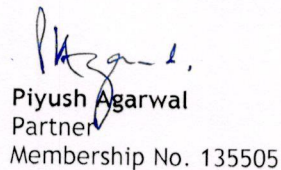 Piyush Agarwal
Partner
Membership No. 135505